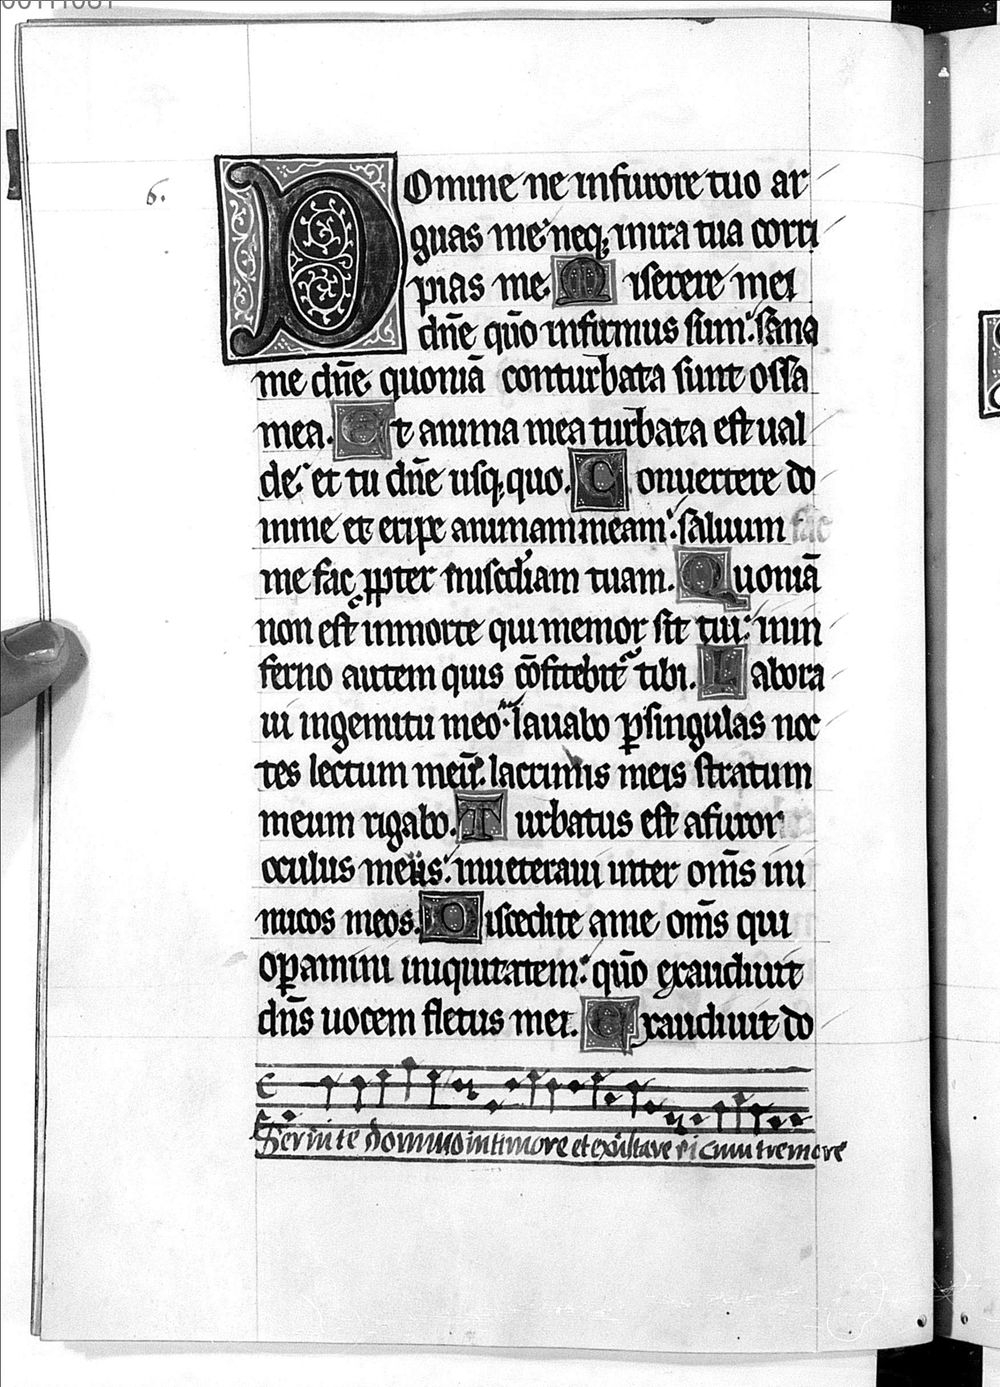 6.
Domine ne in furore tuo ar
guas me: neq; in ira tua corri
pias me. Miserere mei
dn̄e qūo infirmus sum: sana
me dn̄e quoniā conturbata sunt ossa
mea. Et anima mea turbata est ual
de: et tu dn̄e usq; quo. Conuertere do
mine et eripe animam meam: saluum fac
me fac ꝓpter misc̄diam tuam. Quoniā
non est in morte qui memor sit tui: in in
ferno autem quis cōfitebit̉ tibi. Labora
ui in gemitu meo: lauabo ꝑ singulas noc
tes lectum meū: lacrimis meis stratum
meum rigabo. Turbatus est a furor
oculus meus: inueteraui inter om̄s ini
micos meos. Discedite a me om̄s qui
oꝑamini iniquitatem: qūo exaudiuit
dn̄s uocem fletus mei. Exaudiuit do
Seruite domino in timore et exultate ei cum tremore